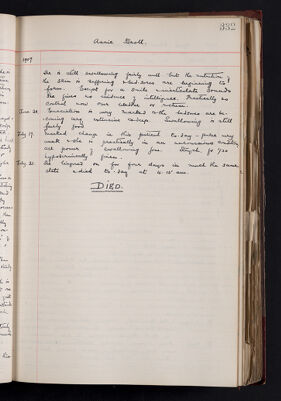 332
Annie Groll.
1907
She is still swallowing fairly well but the nutrition
the skin is suffering & bedsores are beginning to
form. Except for a smile & inarticulate sounds
She gives no evidence of intelligence. Practically no
control now over
June 20 Emaciation is very marked & the bedsores are be-
coming very extensive & deep. Swallowing is still
fairly good
July 17. Marked change in this patient to-day - pulse very
weak & she is practically in an unconscious condition
all power of swallowing gone.
hypodermically given.
July 21. She lingered on for four days in much the same
state & died to-day at 4.15 am.
DIED.